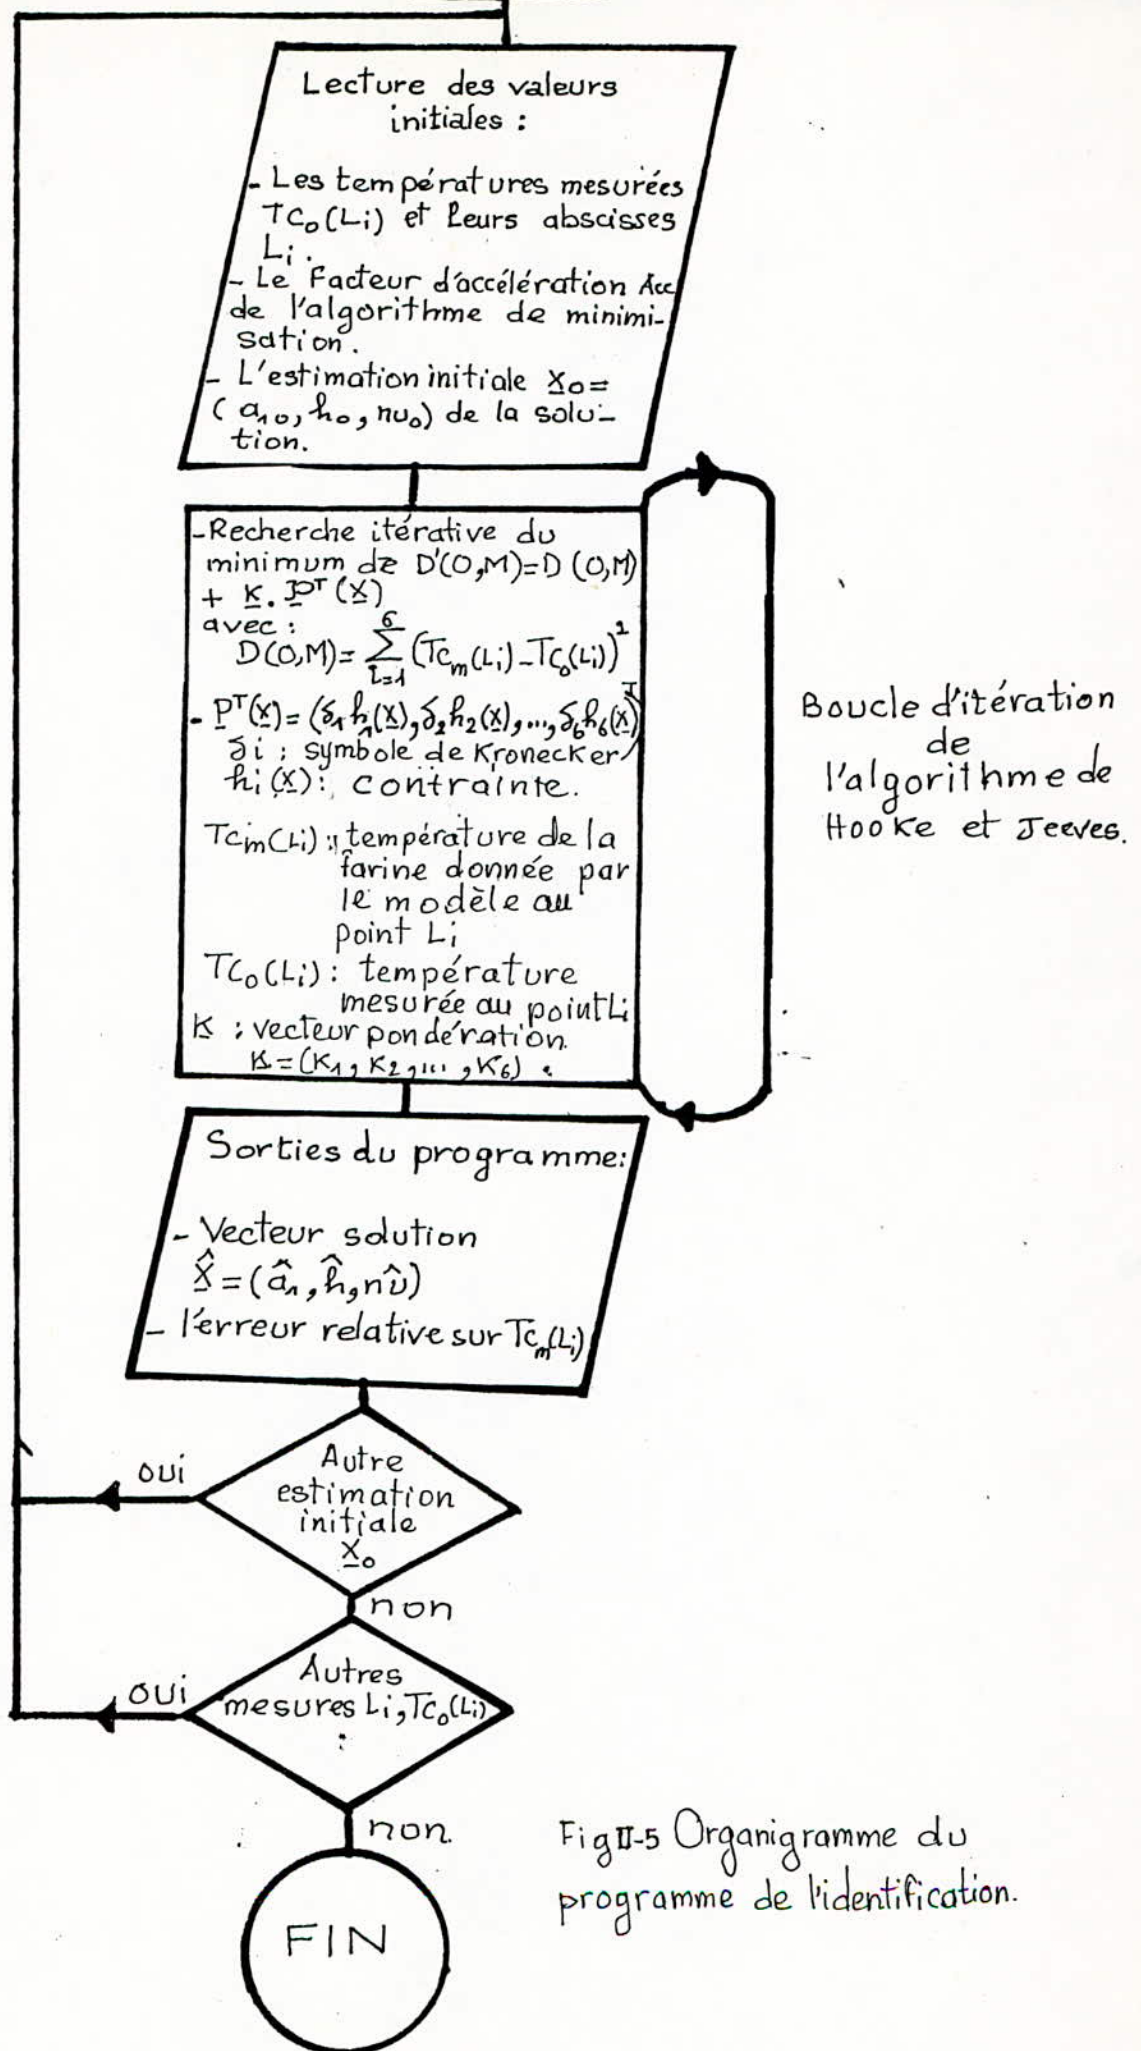 Lecture des valeurs
initiales :
- Les températures mesurées
TC₀(Li) et leurs abscisses
Li.
- Le Facteur d'accélération Acc
de l'algorithme de minimi-
sation.
- L'estimation initiale X₀=
(a₁₀, h₀, nu₀) de la solu-
tion.
- Recherche itérative du
minimum de D'(O,M)=D(O,M)
+ K. Pᵀ(X)
avec :
D(O,M)= ∑_{i=1}^{6} (TCm(Li) - TC₀(Li))²
- Pᵀ(X) = (δ₁h₁(X), δ₂h₂(X), ..., δ₆h₆(X))ᵀ
δi : symbole de Kronecker
hi(X) : contrainte.
TCm(Li) : température de la
farine donnée par
le modèle au
point Li
TC₀(Li) : température
mesurée au point Li
K : vecteur pondération.
K = (K₁, K₂, ..., K₆) .
Boucle d'itération
de
l'algorithme de
Hooke et Jeeves.
Sorties du programme:
- Vecteur solution
X̂ = (â₁, ĥ, nû)
- l'erreur relative sur TCm(Li)
Autre
estimation
initiale
X₀
oui
non
Autres
mesures Li, TC₀(Li)
:
oui
non.
FIN
Fig II-5 Organigramme du
programme de l'identification.